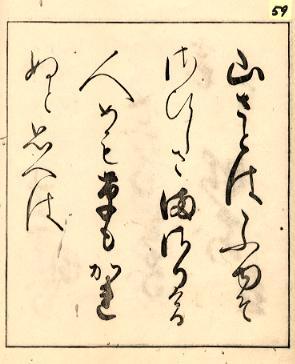 59
山さとはふゆそ
さひしさまさりける
人めも草もかれ
ぬと思へは